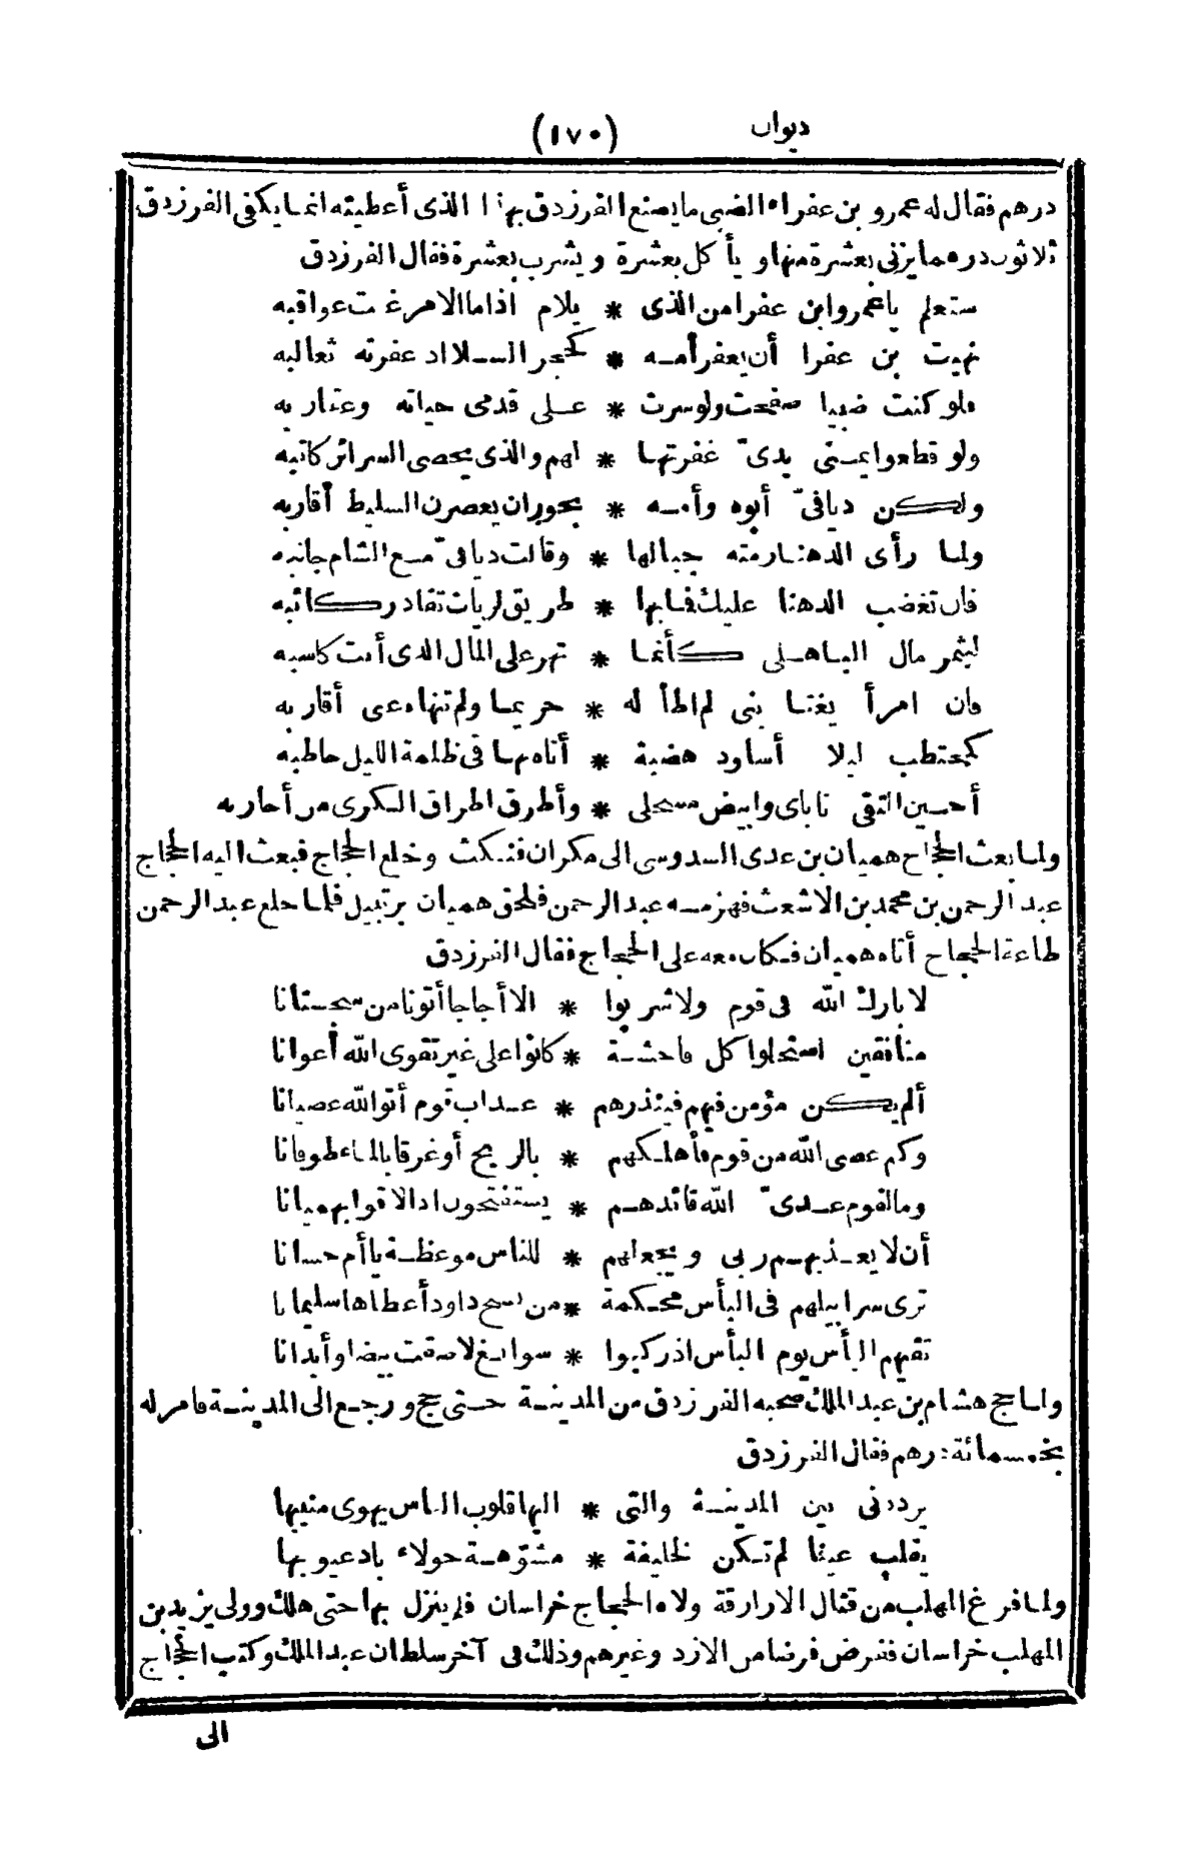 ديوان
(١٧٠)
درهم فقال له عمرو بن عفراء الضبى ما يصنع الفرزدق بهذا الذى أعطيته انما يكفى الفرزدق
ثلاثون درهما يزنى بعشرة منها و يأكل بعشرة ويشرب بعشرة فقال الفرزدق
ستعلم ياعمرو ابن عفرا من الذى * يلام اذا ما الامر غبت عواقبه
نهيت بن عفرا أن يعفر أمه * كحجر السلا اذ عفرته ثعالبه
فلو كنت ضبيا صفحت ولو سرت * على قدمى حياته وعقاربه
ولو قطعوا يمنى يدىّ غفرتها * لهم والذى يحصى السرائر كاتبه
ولكن ديافىّ أبوه وأمه * بحوران يعصرن السليط أقاربه
ولما رأى الدهنا رمته جبالها * وقالت ديافىّ مع الشام جانبه
فان تغضب الدهنا عليك فما بها * طريق لريات تقاد ركائبه
ليثمر مال الباهلى كأنما * تهر على المال الذى أنت كاسبه
فان امرأ يغتابنى لم اطأ له * حريما ولم تنهاه عى أقاربه
كمحتطب ليلا أساود هضبة * أتاه بها فى ظلمة الليل حاطبه
أحسين التقى ناباى وابيض مسحلى * وأطرق اطراق الكرى من أحاربه
ولما بعث الحجاج هميان بن عدى السدوسى الى مكران فنكث وخلع الحجاج فبعث اليه الحجاج
عبد الرحمن بن محمد بن الاشعث فهزمه عبد الرحمن فلحق هميان برتبيل فلما خلع عبد الرحمن
طاعة الحجاج أتاه هميان فكان معه على الحجاج فقال الفرزدق
لا بارك الله فى قوم ولا شربوا * الا أجاجا أتونا من سجستانا
منافقين استحلوا كل فاحشة * كانوا على غير تقوى الله أعوانا
ألم يكن مؤمن فيهم فينذرهم * عذاب قوم أتوا لله عصيانا
وكم عصى الله من قوم فأهلكهم * بالريح أو غرقا بالماء طوفانا
وما لقوم عدىّ الله قائدهم * يستفتحون اذ الاقوا بهميانا
أن لا يعذبهم ربى ويجعلهم * للناس موعظة يا أم حسانا
ترى سرابيلهم فى البأس محكمة * من نسج داود أعطاها سليمانا
تقيهم البأس يوم البأس اذ ركبوا * سوابغ لاصقت بيضا وأبدانا
ولما حج هشام بن عبد الملك صحبه الفرزدق من المدينة حتى حج ورجع الى المدينة فامر له
بخمسمائة درهم فقال الفرزدق
يرددنى بين المدينة والتى * اليها قلوب الناس يهوى منيبها
يقلب عينا لم تكن لخليفة * مشوّهة حولاء باد عيوبها
ولما فرغ المهلب من قتال الازارقة ولاه الحجاج خراسان فلم ينزل بها حتى هلك وولى يزيد بن
المهلب خراسان ففرض فرضا من الازد وغيرهم وذلك فى آخر سلطان عبد الملك وكتب الحجاج
الى